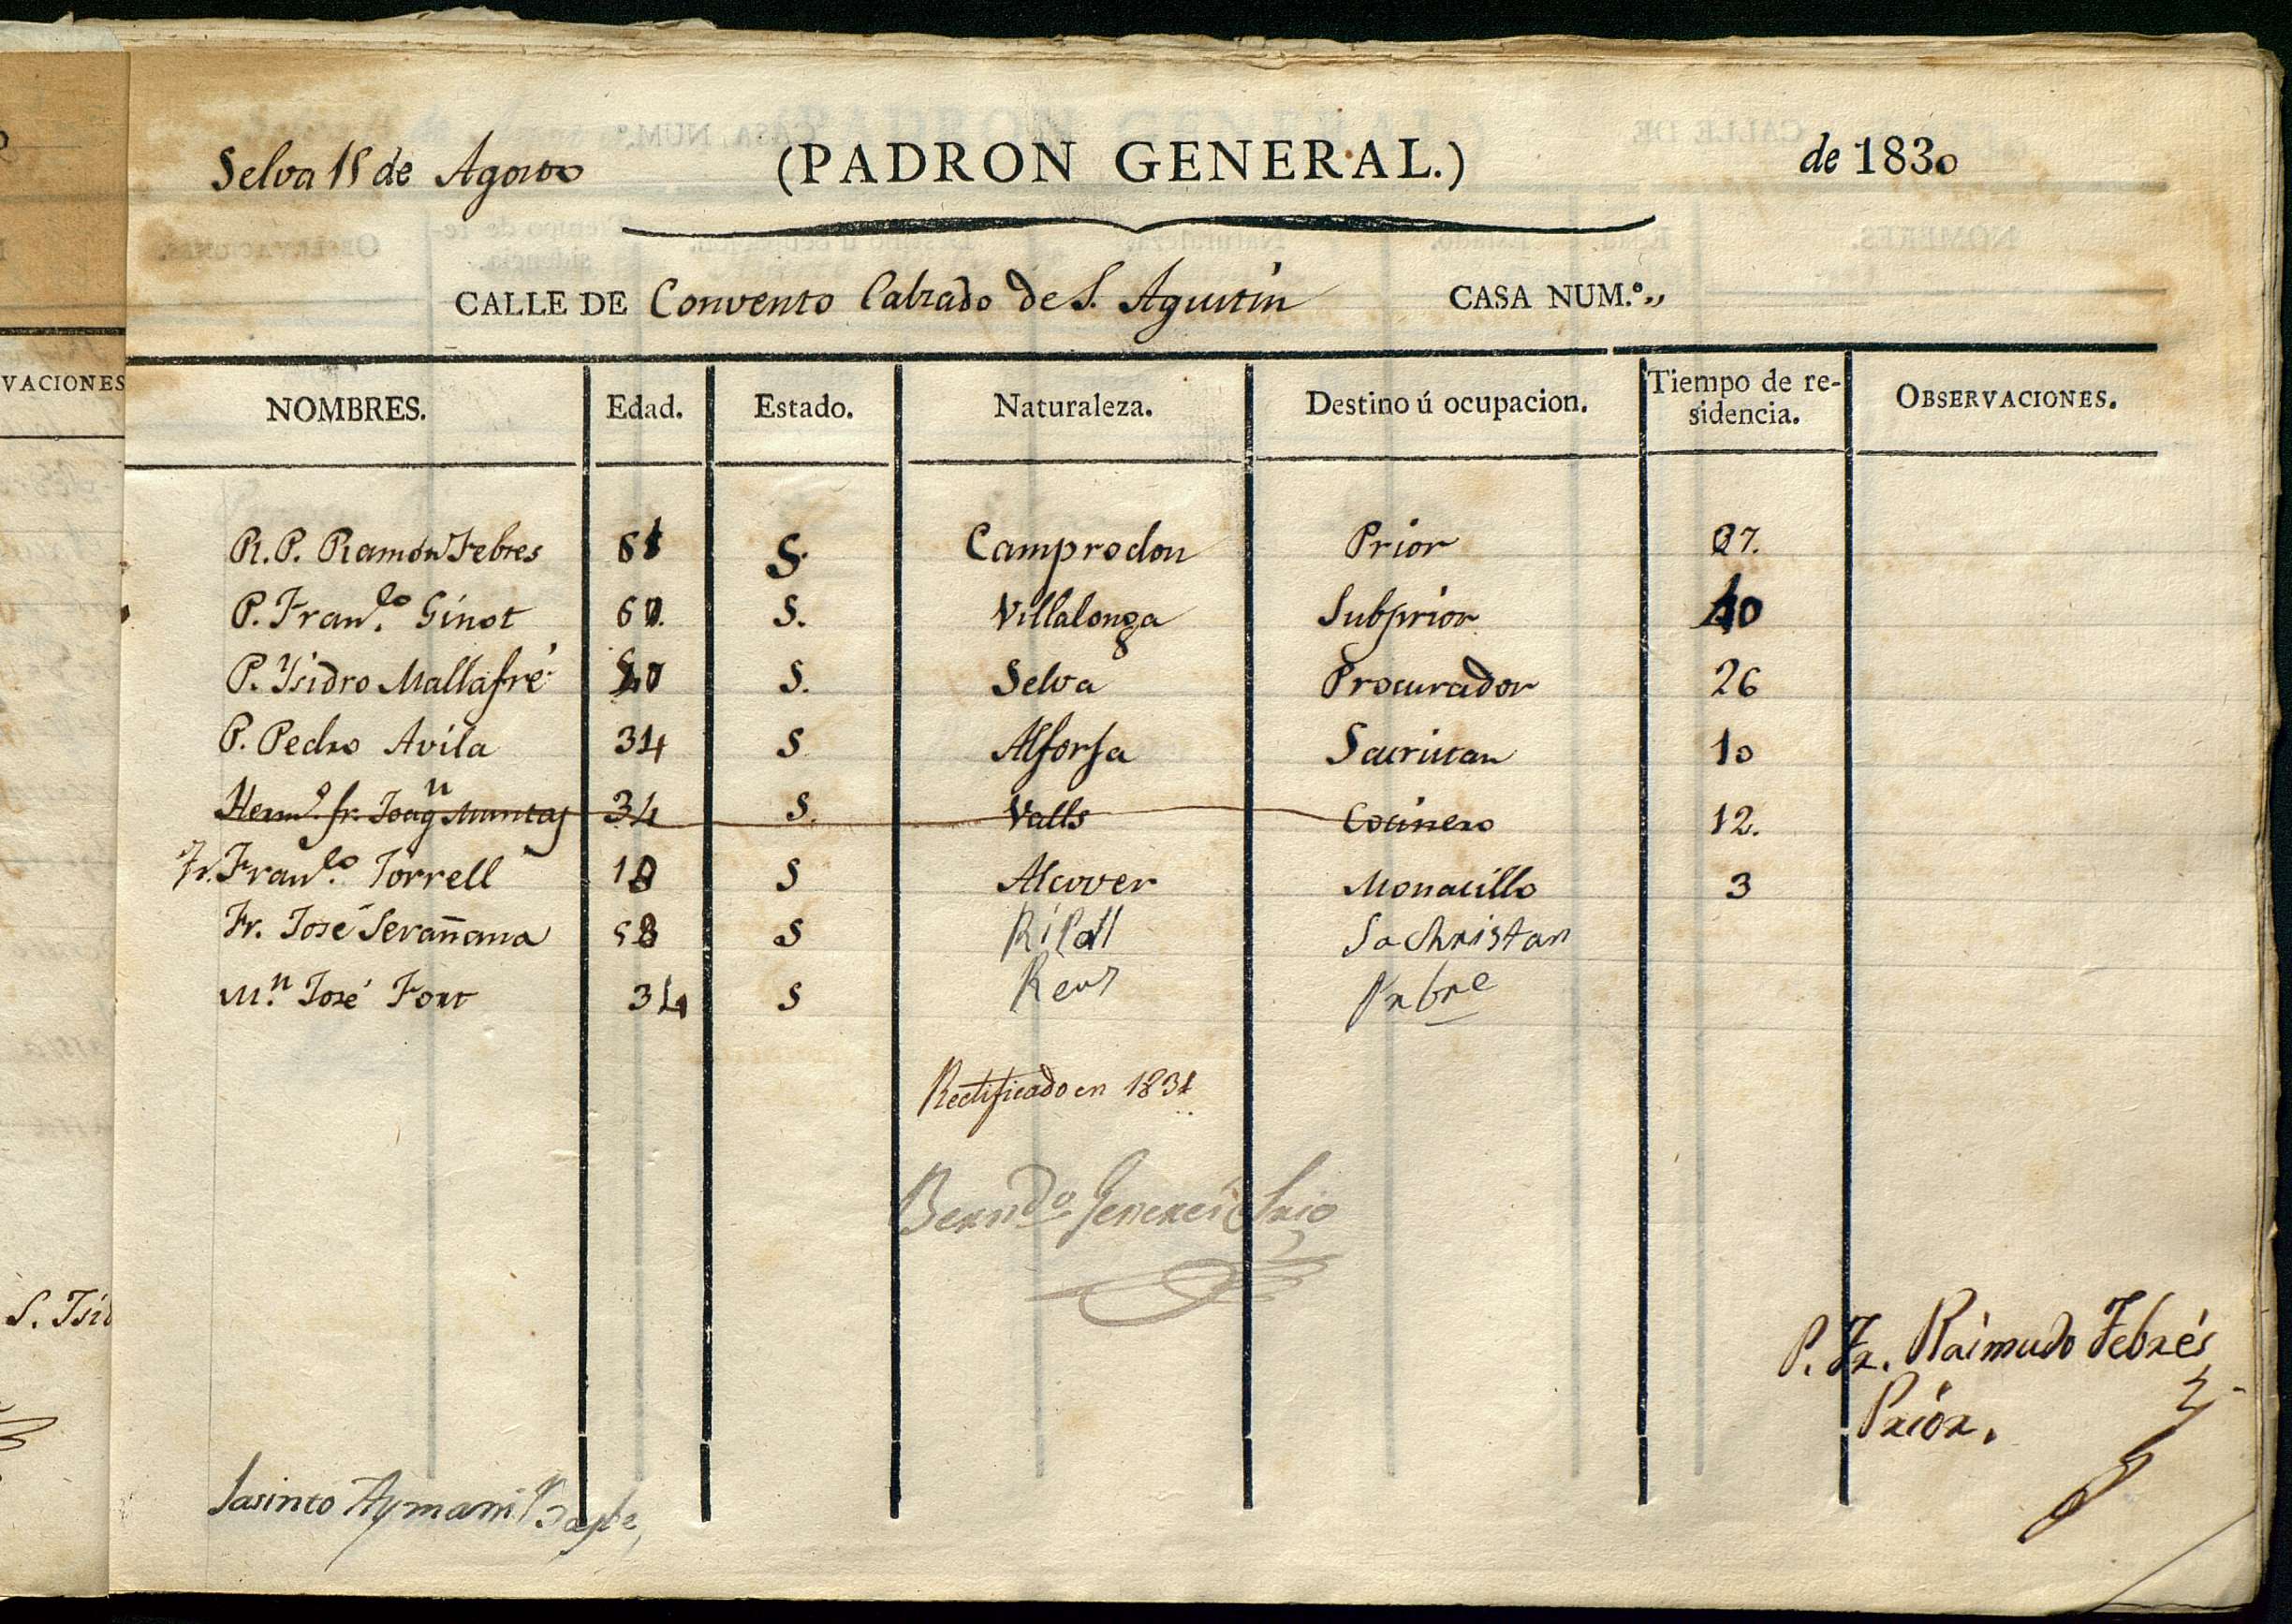 Selva 18 de Agosto (PADRON GENERAL.) de 1830
CALLE DE Convento Calzado de S. Agustin CASA NUM.º „
VACIONES
NOMBRES. Edad. Estado. Naturaleza. Destino ú ocupacion. Tiempo de re-
sidencia. OBSERVACIONES.
R. P. Ramón Febres S. Camprodon Prior
P. Fran.co Ginot S. Villalonga Subprior 40
P. Ysidro Mallafré S. Selva Procurador 26
P. Pedro Avila 34 S Alforja Sacristan 10
Herm.o fr. Joaq.n Muntas 34 S. Valls Cocinero 12.
Fr. Fran.co Torrell 18 S Alcover Monacillo 3
Fr. José Serañana 58 S Sachristan
M.n José Font 34 S Reus Prbre
Rectificado en 1831
Bernd.o Srio
S. Isid
P. Fr. Raimudo Febrés
Priór.
Jasinto Aymami Bayle